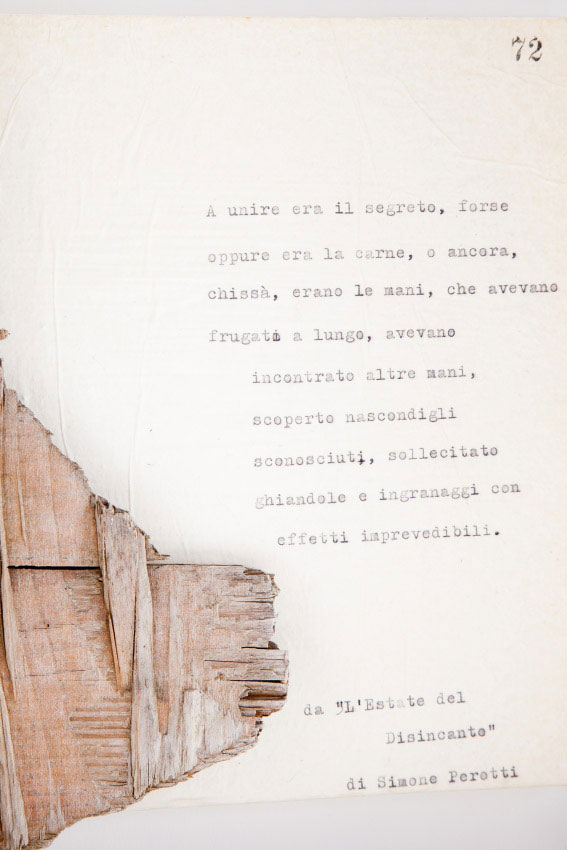 72
A unire era il segreto, forse
oppure era la carne, o ancora,
chissà, erano le mani, che avevano
frugato a lungo, avevano
incontrato altre mani,
scoperto nascondigli
sconosciuti, sollecitato
ghiandole e ingranaggi con
effetti imprevedibili.
da "L'Estate del
Disincanto"
di Simone Perotti